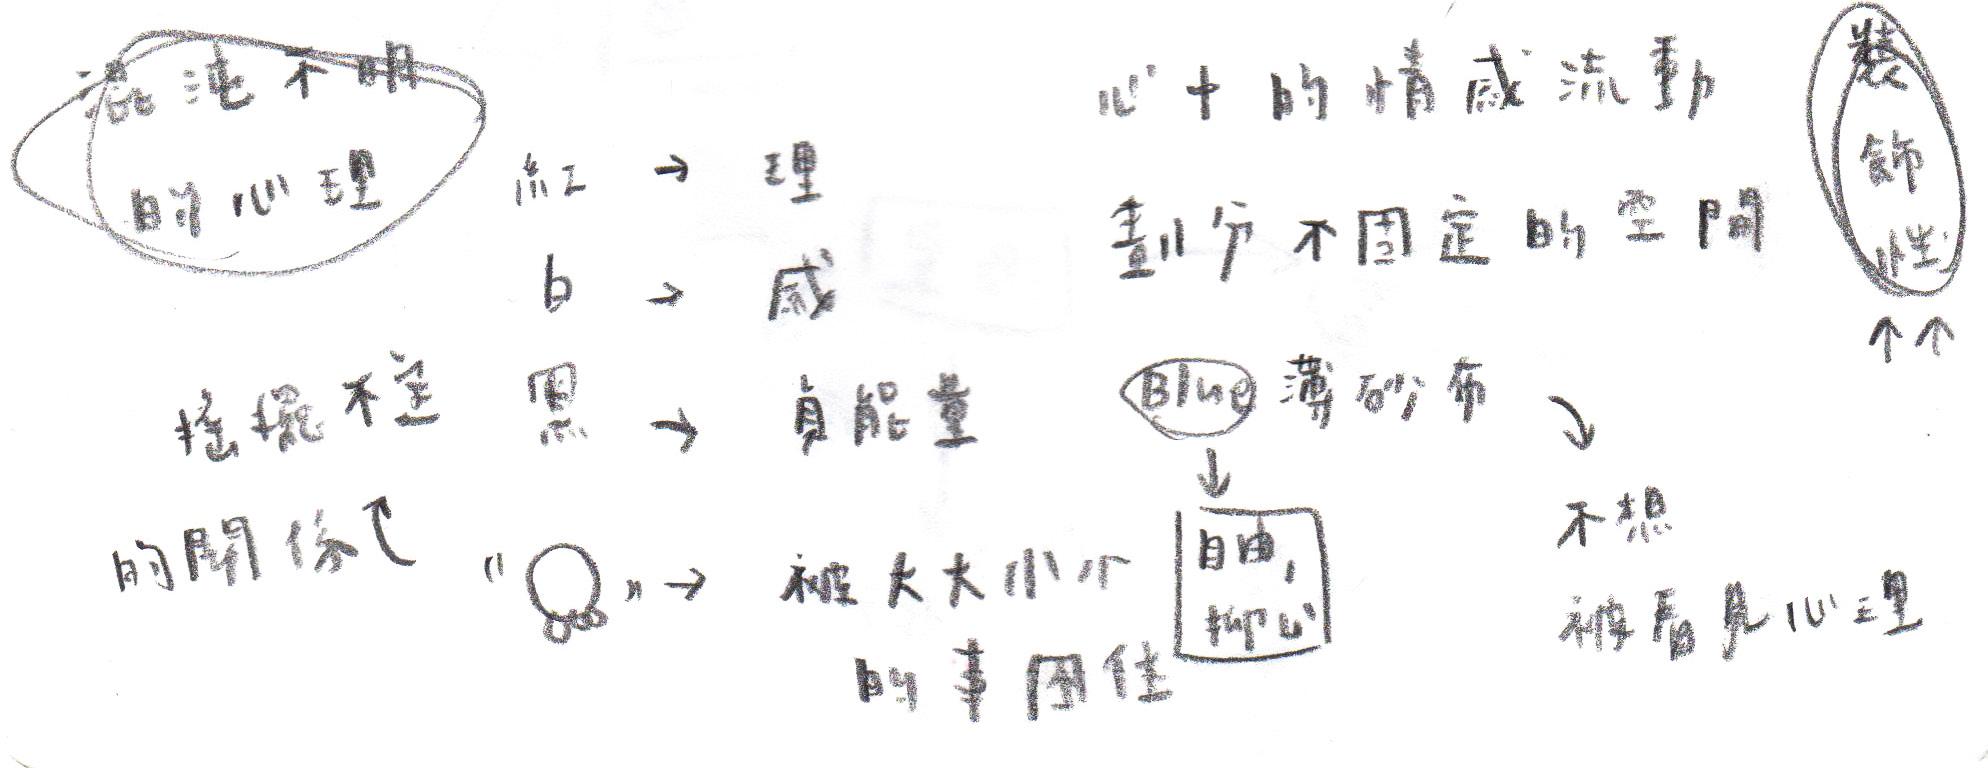 混沌不明
的心理
紅 → 理
b → 感
黑 → 負能量
搖擺不定
的關係
"○" → 被大大小小
的事困住
心中的情感流動
劃分不固定的空間
Blue 薄砂布
自由,
抑心
不想
被看見心理
裝飾性
↑↑